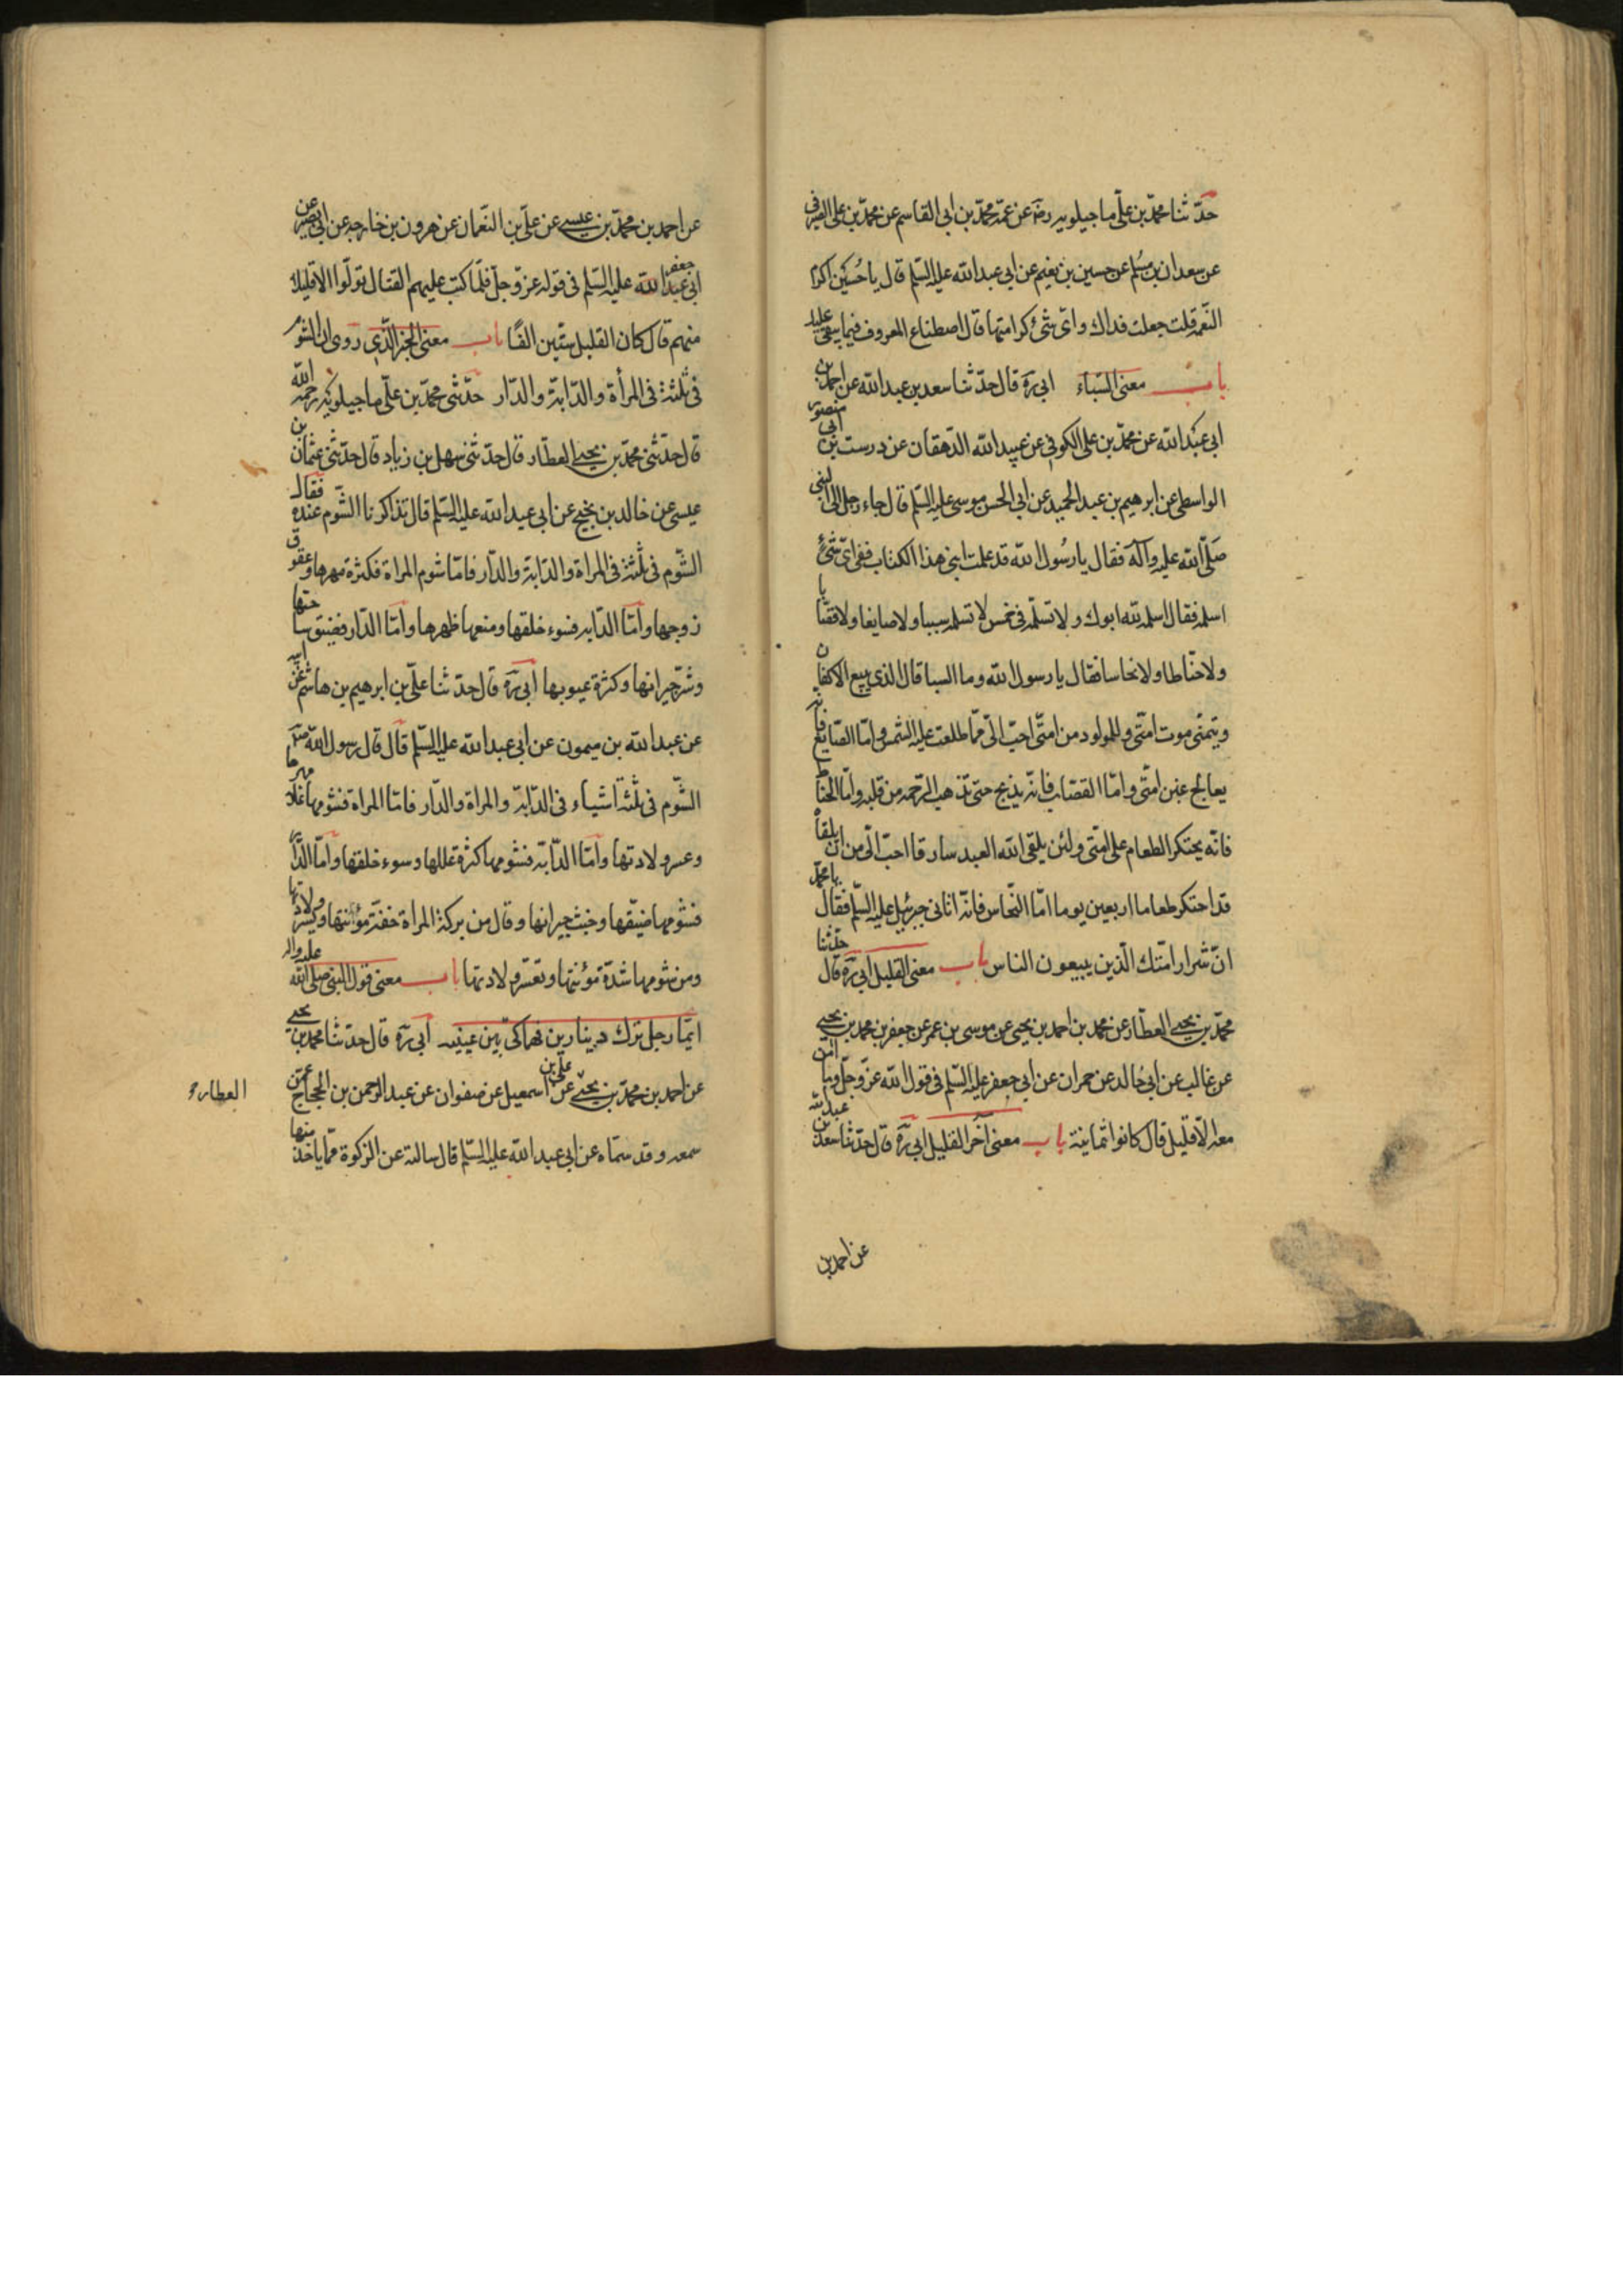 حدّثنا محمّد بن علیّ ماجیلویه رضه عن عمّه محمّد بن ابی القاسم عن محمّد بن علی الصیرفی
عن سعدان بن مسلم عن حسین بن نعیم عن ابی عبدالله علیه السّلم قال یا حُسین اکرم
النّعمة قلت جعلت فداك وایّ شئ کرامتها قال اصطناع المعروف فیما یبقی علیك
باب معنی السّباء ابی ره قال حدّثنا سعد بن عبدالله عن احمد بن
ابی عبدالله عن محمّد بن علی الکوفی عن عبیدالله الدّهقان عن درست بن ابی منصور
الواسطی عن ابرهیم بن عبد الحمید عن ابی الحسن موسی علیه السّلم قال جاء رجل الی النبی
صلّی الله علیه وآله فقال یا رسُول الله قد علمت ابنی هذا الکتاب ففی ایّ شئ
اسلمه فقال اسلمه لله ابوك ولا تسلّمه فی خمس لا تسلمه سببا ولا صایغا ولا قصّابا
ولا حنّاطا ولا نخاسا فقال یا رسول الله وما السبا قال الذی یبیع الاکفان
ویتمنّی موت امّتی وللمولود من امّتی احبّ الیّ ممّا طلعت علیه الشمس وامّا الصّایغ فانه
یعالج غبن امّتی وامّا القصّاب فانّه یذبح حتی تذهب الرّحمه من قلبه وامّا الحنّاط
فانّه یحتکر الطعام علی امّتی ولئن یلقی الله العبد سارقا احبّ الیّ من ان یلقاه
قد احتکر طعاما اربعین یوما امّا النخّاس فانّه اتانی جبرئیل علیه السّلم فقال یا محمّد
انّ شرار امّتك الّذین یبیعون الناس باب معنی القلیل ابی ره قال حدّثنا
محمّد بن یحیی العطّار عن محمد بن احمد بن یحیی عن موسی بن عمر عن جعفر بن محمد بن یحیی
عن غالب عن ابی خالد عن حمران عن ابی جعفر علیه السّلم فی قول الله عزّ وجلّ وما امن
معه الاّ قلیل قال کانوا ثمانیة باب معنی آخر القلیل ابی ره قال حدّثنا سعد بن عبدالله
عن احمد بن
عن احمد بن محمّد بن عیسی عن علیّ بن النّعمان عن هرون بن خارجه عن ابی بصیر عن
ابی عبدالله جعفر علیه السّلم فی قوله عزّ وجلّ فلمّا کتب علیهم القتال تولّوا الا قلیلا
منهم قال کان القلیل ستّین الفًا باب معنی الخبر الّذی روی ان الشوم
فی ثلثة فی المرأة والدّابة والدّار حدّثنی محمّد بن علّی ماجیلویه رحمه الله
قال حدّثنی محمّد بن یحیی العطّار قال حدّثنی سهل بن زیاد قال حدّثنی عثمان بن
عیسی عن خالد بن نجیح عن ابی عبدالله علیه السّلم قال تذاکرنا الشّوم عنده فقال
الشّوم فی ثلثة فی المراة والدّابة والدّار فامّا شوم المراة فکثرة مهرها وعقوق
زوجها وامّا الدّابه فسوء خلقها ومنعها ظهرها وامّا الدّار فضیق ساحتها
وشرّ جیرانها وکثرة عیوبها ابی ره قال حدّثنا علیّ بن ابرهیم بن هاشم عن ابیه
عن عبدالله بن میمون عن ابی عبدالله علیه السّلم قال قال رسول الله صلم
الشّوم فی ثلثة اشیاء فی الدّابة والمراة والدّار فامّا المراة فشومها غلاء مهرها
وعسر ولادتها وامّا الدّابة فشومها کثرة عللها وسوء خلقها وامّا الدّار
فشومها ضیّقها وخبث جیرانها وقال من برکة المراة خفّة مؤنتها ویسر ولادتها
ومن شومها شدّة مؤنتها وتعسّر ولادتها باب معنی قول النبی صلی الله علیه واله
ایّما رجل ترك دینارین فهما کیّ بین عینیه ابی ره قال حدّثنا محمد بن یحیی
عن احمد بن محمّد بن یحیی عن علی بن اسمعیل عن صفوان عن عبد الرحمن بن الحجّاج عمّن
العطار
سمعه وقد سمّاه عن ابی عبدالله علیه السّلم قال سالته عن الزکوة ممّا یاخذ منها